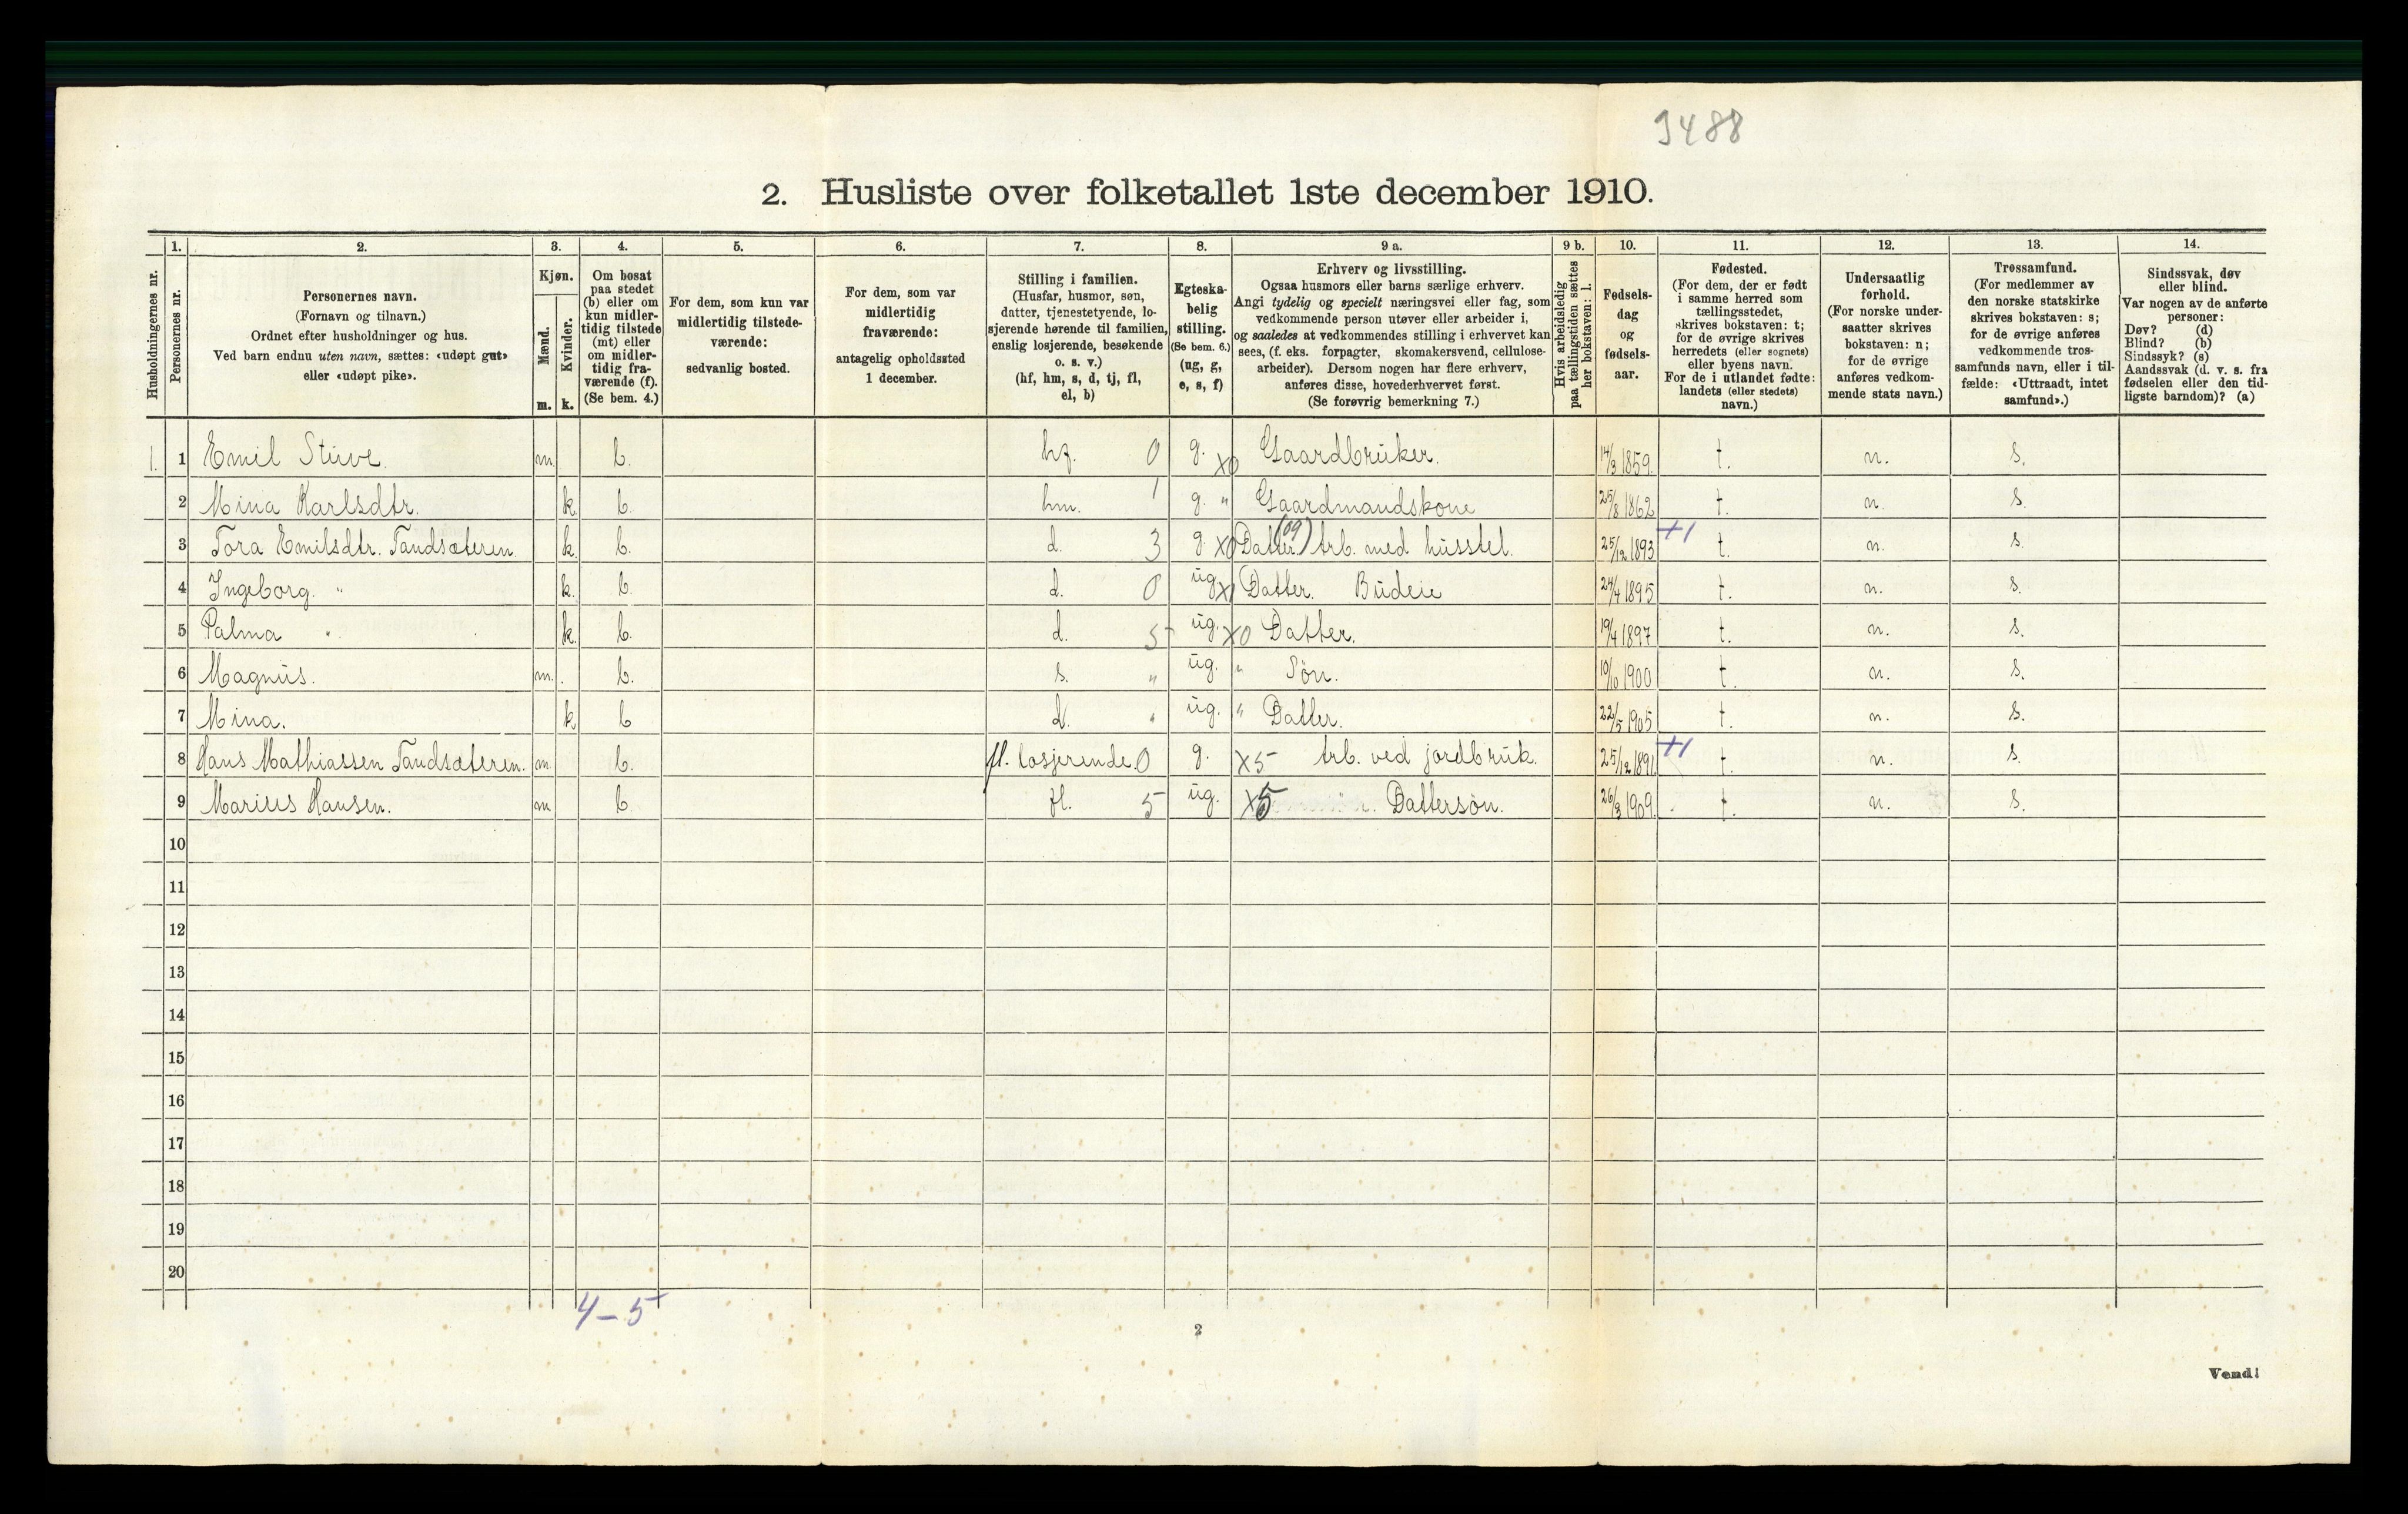 3488
2. Husliste over folketallet 1ste december 1910.
Husholdningernes nr.
1. Personernes nr.
2. Personernes navn.
(Fornavn og tilnavn.)
Ordnet efter husholdninger og hus.
Ved barn endnu uten navn, sættes: «udøpt gut»
eller «udøpt pike».
3. Kjøn.
Mænd. m.
Kvinder. k.
4. Om bosat
paa stedet
(b) eller om
kun midler-
tidig tilstede
(mt) eller
om midler-
tidig fra-
værende (f).
(Se bem. 4.)
5. For dem, som kun var
midlertidig tilstede-
værende:
sedvanlig bosted.
6. For dem, som var
midlertidig
fraværende:
antagelig opholdssted
1 december.
7. Stilling i familien.
(Husfar, husmor, søn,
datter, tjenestetyende, lo-
sjerende hørende til familien,
enslig losjerende, besøkende
o. s. v.)
(hf, hm, s, d, tj, fl,
el, b)
8. Egteska-
belig
stilling.
(Se bem. 6.)
(ug, g,
e, s, f)
9 a. Erhverv og livsstilling.
Ogsaa husmors eller barns særlige erhverv.
Angi tydelig og specielt næringsvei eller fag, som
vedkommende person utøver eller arbeider i,
og saaledes at vedkommendes stilling i erhvervet kan
sees, (f. eks. forpagter, skomakersvend, cellulose-
arbeider). Dersom nogen har flere erhverv,
anføres disse, hovederhvervet først.
(Se forøvrig bemerkning 7.)
9 b. Hvis arbeidsledig
paa tællingstiden sættes
her bokstaven: l.
10. Fødsels-
dag
og
fødsels-
aar.
11. Fødested.
(For dem, der er født
i samme herred som
tællingsstedet,
skrives bokstaven: t;
for de øvrige skrives
herredets (eller sognets)
eller byens navn.
For de i utlandet fødte:
landets (eller stedets)
navn.)
12. Undersaatlig
forhold.
(For norske under-
saatter skrives
bokstaven: n;
for de øvrige
anføres vedkom-
mende stats navn.)
13. Trossamfund.
(For medlemmer av
den norske statskirke
skrives bokstaven: s;
for de øvrige anføres
vedkommende tros-
samfunds navn, eller i til-
fælde: «Uttraadt, intet
samfund».)
14. Sindssvak, døv
eller blind.
Var nogen av de anførte
personer:
Døv? (d)
Blind? (b)
Sindssyk? (s)
Aandssvak (d. v. s. fra
fødselen eller den tid-
ligste barndom)? (a)
1. 1 Emil Stuve m. b. hf. 0 g. X0 Gaardbruker. 14/3 1859. t. n. s.
2 Mina Karlsdtr. k. b. hm. 1 g. " Gaardmandskone 25/8 1862 t. n. s.
3 Tora Emilsdtr. Tandsæteren. k. b. d. 3 g. X0 Datter. (09) arb. med husstel. 25/12 1893 +1 t. n. s.
4 Ingeborg. " k. b. d. 0 ug X1 Datter. Budeie 24/4 1895 t. n. s.
5 Palma " k. b. d. 5 ug. X0 Datter. 19/4 1897 t. n. s.
6 Magnus. m. b. s. " ug. " Søn. 10/10 1900 t. n. s.
7 Mina. k b d. " ug. " Datter. 22/5 1905 t. n. s.
8 Hans Mathiassen Tandsæteren. m. b. fl. losjerende. 0 g. X5 arb. ved jordbruk. 25/12 1891 +1 t. n. s.
9 Marius Hansen. m b. fl. 5 ug. X5 Dattersøn. 26/3 1909. t. n. s.
10
11
12
13
14
15
16
17
18
19
20
4-5
2
Vend!